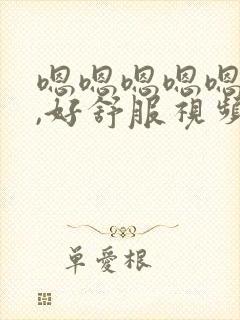 嗯嗯嗯嗯嗯
,好舒服視頻
单愛根